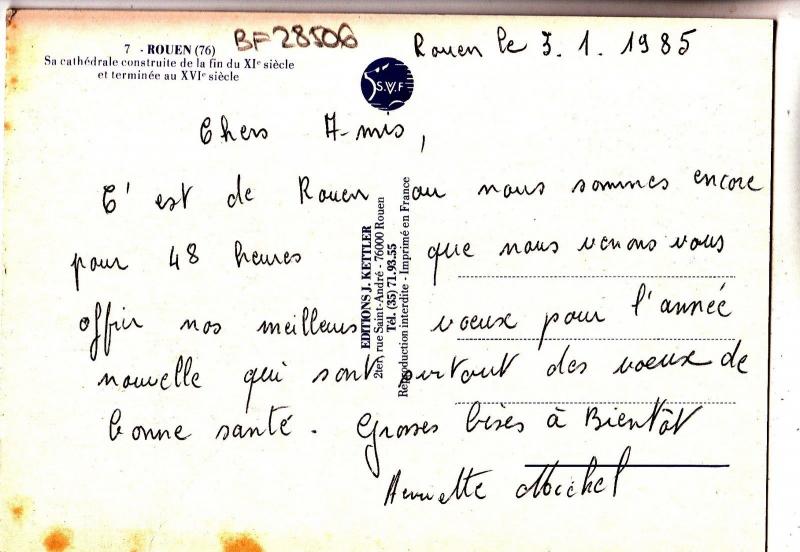 7 - ROUEN (76)
Sa cathédrale construite de la fin du XIe siècle
et terminée au XVIe siècle
BF 28506
Rouen le 3. 1. 1985
S.V.F
Chers A-mis,
C'est de Rouen ou nous sommes encore
pour 48 heures que nous venons vous
offrir nos meilleurs voeux pour l'année
nouvelle qui sont surtout des voeux de
bonne santé. Grosses bises à Bientôt
Henriette Michel
EDITIONS J. KETTLER
2ter, rue Saint-André - 76000 Rouen
Tél. (35) 71.93.55
Reproduction interdite - Imprimé en France